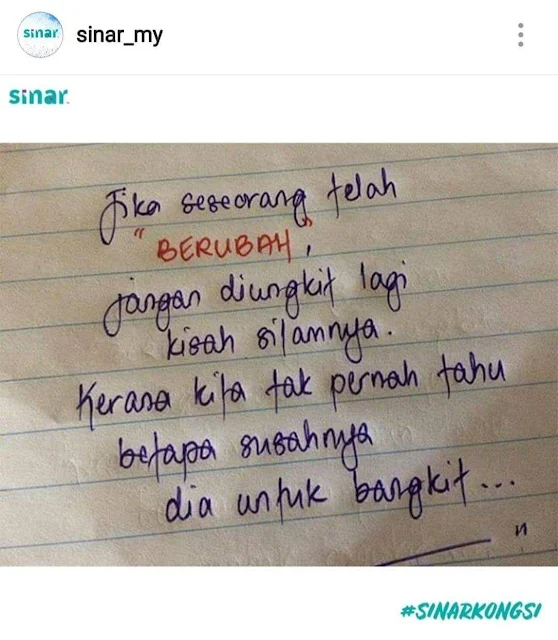 sinar
sinar_my
sinar
Jika seseorang telah
"BERUBAH",
jangan diungkit lagi
kisah silamnya.
Kerana kita tak pernah tahu
betapa susahnya
dia untuk bangkit...
#SINARKONGSI